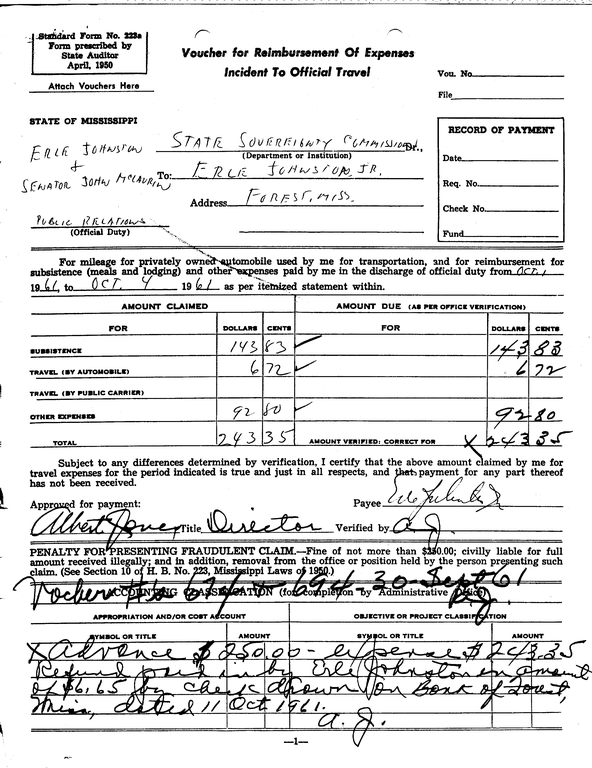 Standard Form No. 223a
Form prescribed by
State Auditor
April, 1950
Attach Vouchers Here
Voucher for Reimbursement Of Expenses
Incident To Official Travel
Vou. No.
File
STATE OF MISSISSIPPI
ERLE JOHNSTON
&
SENATOR JOHN McLAURIN
STATE SOVEREIGNTY COMMISSION Dr.,
(Department or Institution)
To: ERLE JOHNSTON, JR.
Address FOREST, MISS.
PUBLIC RELATIONS
(Official Duty)
RECORD OF PAYMENT
Date
Req. No.
Check No.
Fund
For mileage for privately owned automobile used by me for transportation, and for reimbursement for
subsistence (meals and lodging) and other expenses paid by me in the discharge of official duty from OCT. 1
1961, to OCT. 4 1961 as per itemized statement within.
AMOUNT CLAIMED AMOUNT DUE (AS PER OFFICE VERIFICATION)
FOR DOLLARS CENTS FOR DOLLARS CENTS
SUBSISTENCE 143 83 143 83
TRAVEL (BY AUTOMOBILE) 6 72 6 72
TRAVEL (BY PUBLIC CARRIER)
OTHER EXPENSES 92 80 92 80
TOTAL 243 35 AMOUNT VERIFIED: CORRECT FOR X 243 35
Subject to any differences determined by verification, I certify that the above amount claimed by me for
travel expenses for the period indicated is true and just in all respects, and that payment for any part thereof
has not been received.
Approved for payment: Payee Erle Johnston Jr
Albert Jones Title Director Verified by A. J.
PENALTY FOR PRESENTING FRAUDULENT CLAIM.—Fine of not more than $250.00; civilly liable for full
amount received illegally; and in addition, removal from the office or position held by the person presenting such
claim. (See Section 10 of H. B. No. 223, Mississippi Laws of 1950.)
30-Sept 61
ACCOUNTING CLASSIFICATION (for completion by Administrative Office)
APPROPRIATION AND/OR COST ACCOUNT OBJECTIVE OR PROJECT CLASSIFICATION
SYMBOL OR TITLE AMOUNT SYMBOL OR TITLE AMOUNT
X Advance $250.00 - expense $243.35
Refund paid in by Erle Johnston in amount
of $6.65 by check drawn on Bank of Forest,
Miss, dated 11 Oct 1961.
A. J.
—1—